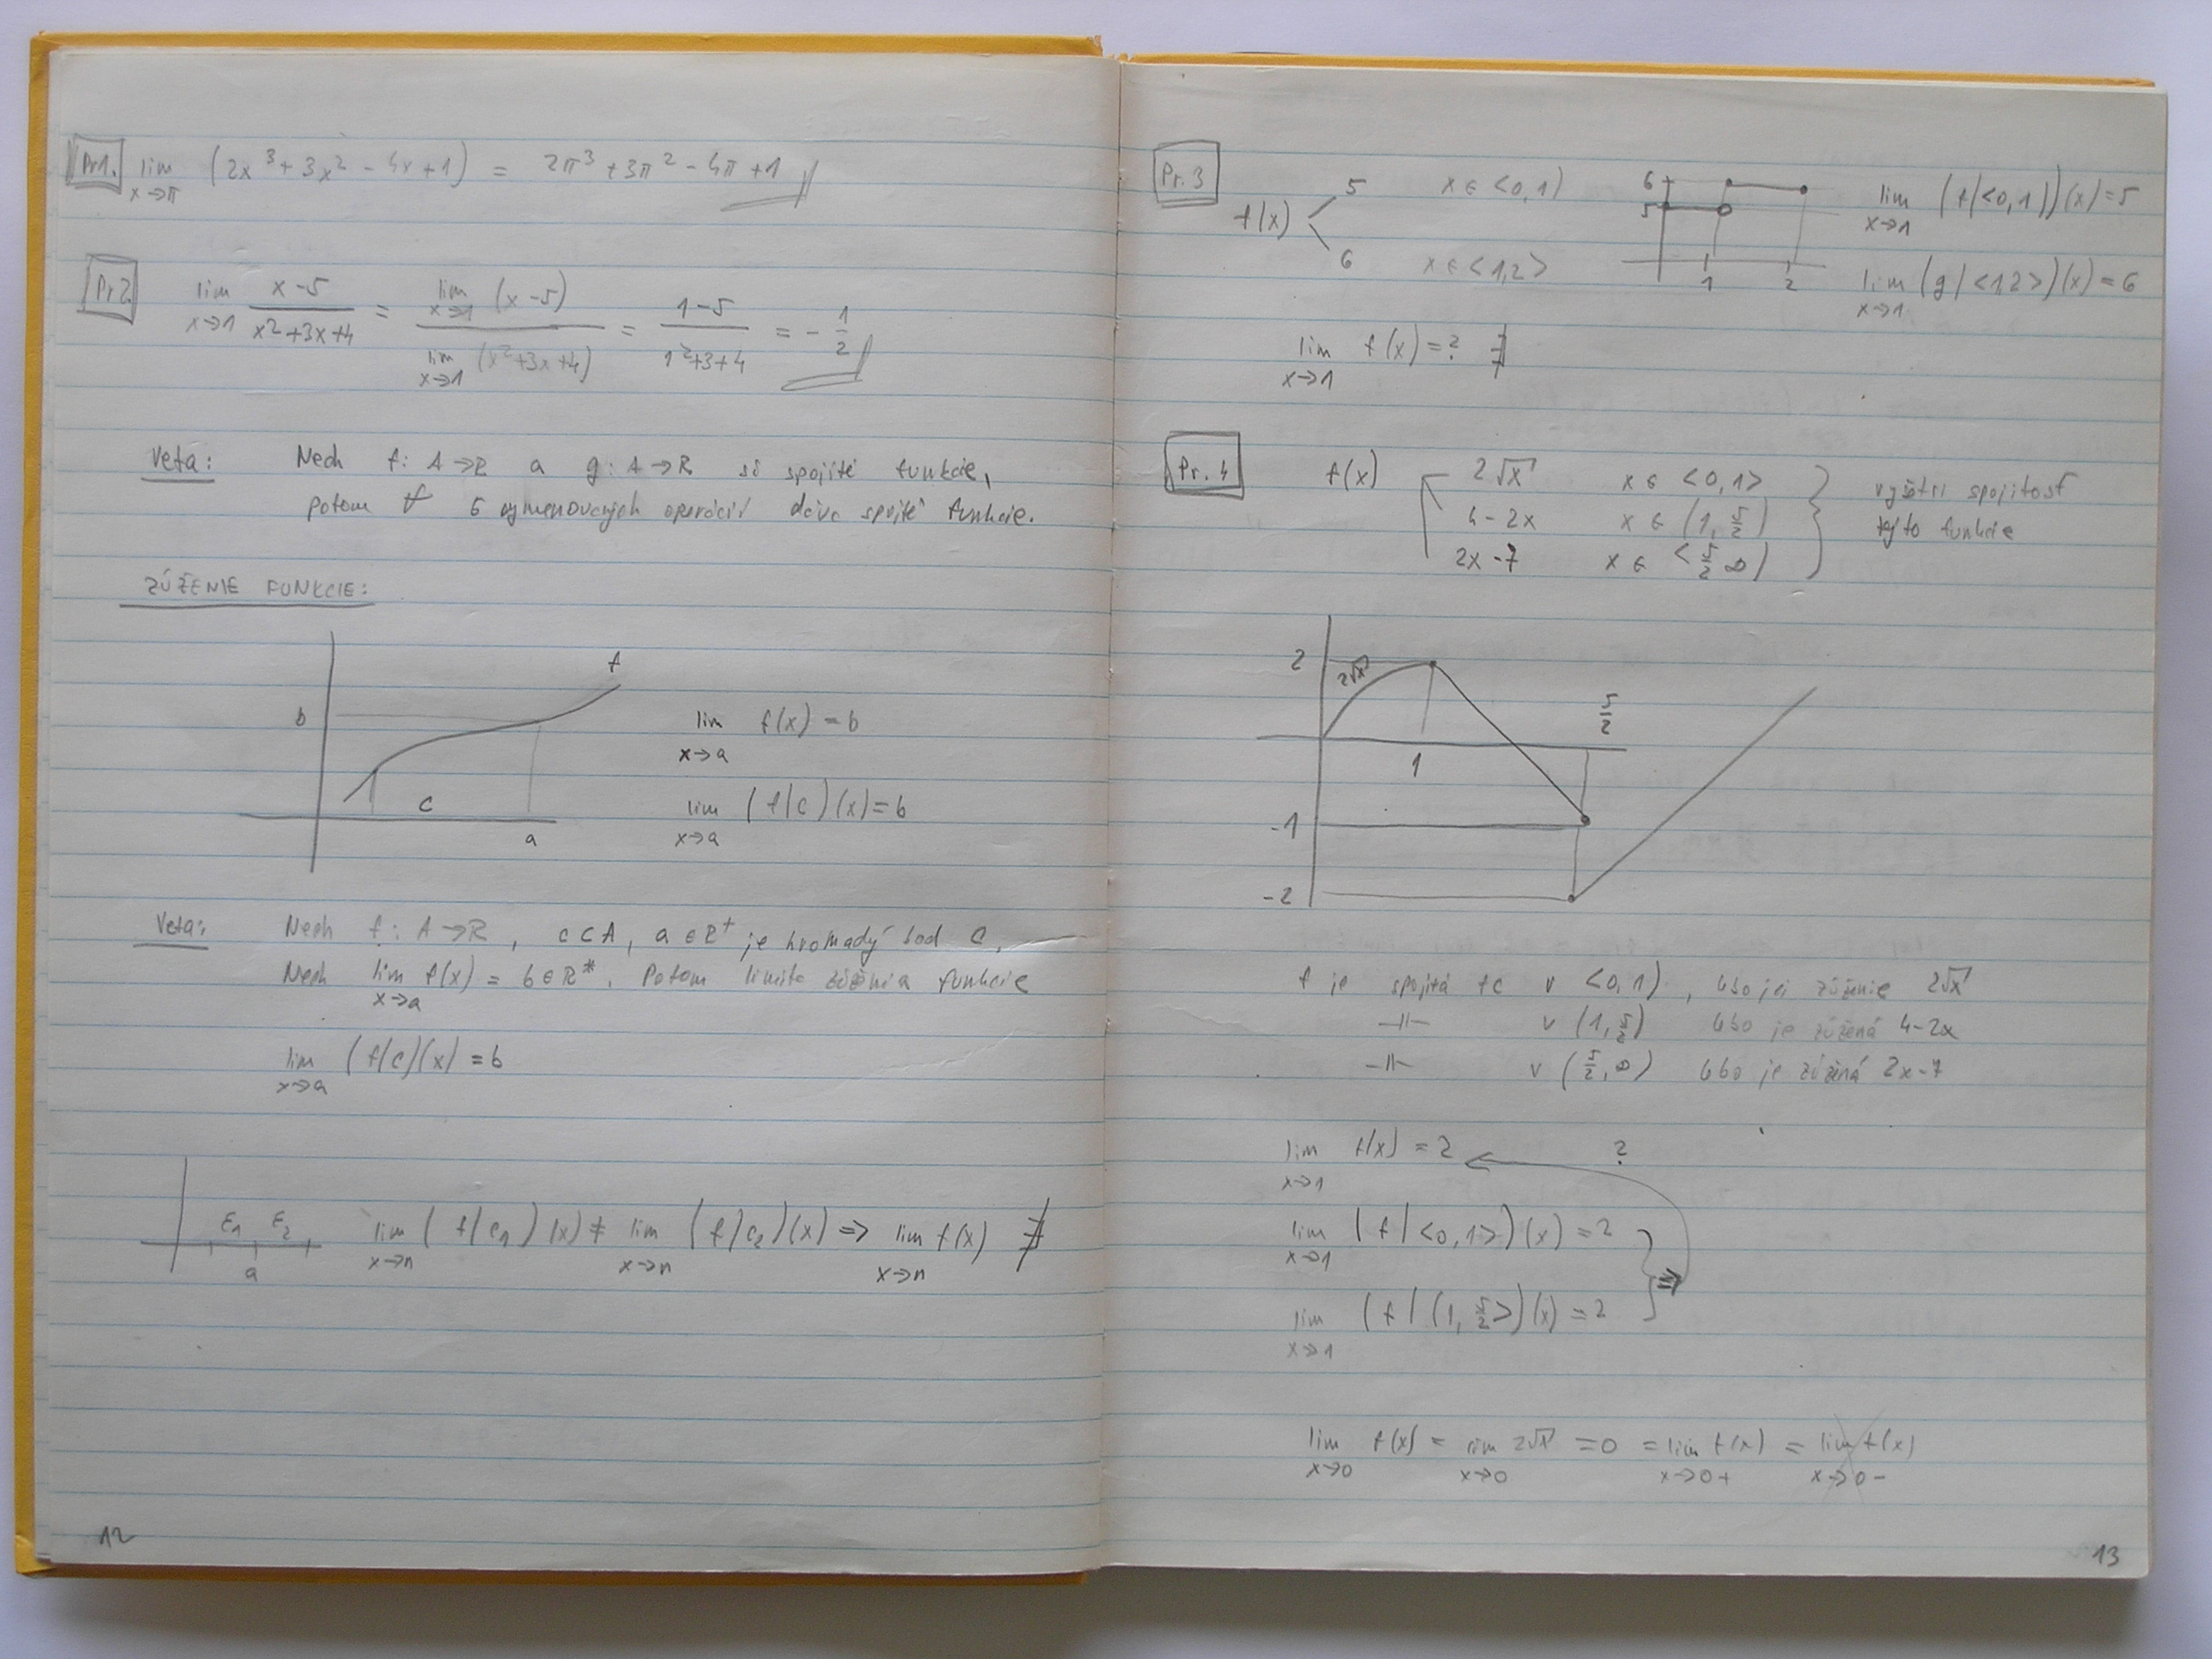 Pr1. lim x→π (2x³ + 3x² - 4x + 1) = 2π³ + 3π² - 4π + 1
Pr2. lim x→1 (x-5)/(x²+3x+4) = lim x→1 (x-5) / lim x→1 (x²+3x+4) = (1-5)/(1²+3+4) = -1/2
Veta: Nech f: A→R a g: A→R sú spojité funkcie,
potom 5 vymenovaných operácií dáva spojité funkcie.
ZÚŽENIE FUNKCIE:
f
b
c
a
lim x→a f(x) = b
lim x→a (f|c)(x) = b
Veta: Nech f: A→R, c⊂A, a∈R⁺ je hromadý bod c,
Nech lim x→a f(x) = b∈R*. Potom limita zúženia funkcie
lim x→a (f|c)(x) = b
ε₁ ε₂
a
lim x→n (f|c₁)(x) ≠ lim x→n (f|c₂)(x) ⇒ lim x→n f(x) ∄
12
Pr.3
f(x)
5 x∈<0,1)
6 x∈<1,2>
6
5
1 2
lim x→1 (f|<0,1))(x) = 5
lim x→1 (g|<1,2>)(x) = 6
lim x→1 f(x) = ? ∄
Pr. 4
f(x)
2√x x∈<0,1>
4-2x x∈(1,5/2)
2x-7 x∈<5/2 ∞)
vyšetri spojitosť
tejto funkcie
2
2√x
5/2
1
-1
-2
f je spojitá fc v <0,1), lebo jej zúženie 2√x
-||- v (1,5/2) lebo je zúžená 4-2x
-||- v (5/2,∞) lebo je zúžená 2x-7
lim x→1 f(x) = 2 ?
lim x→1 (f|<0,1>)(x) = 2
lim x→1 (f|(1,5/2>)(x) = 2 ⇒
lim x→0 f(x) = lim x→0 2√x = 0 = lim x→0+ f(x) = lim x→0- f(x)
13